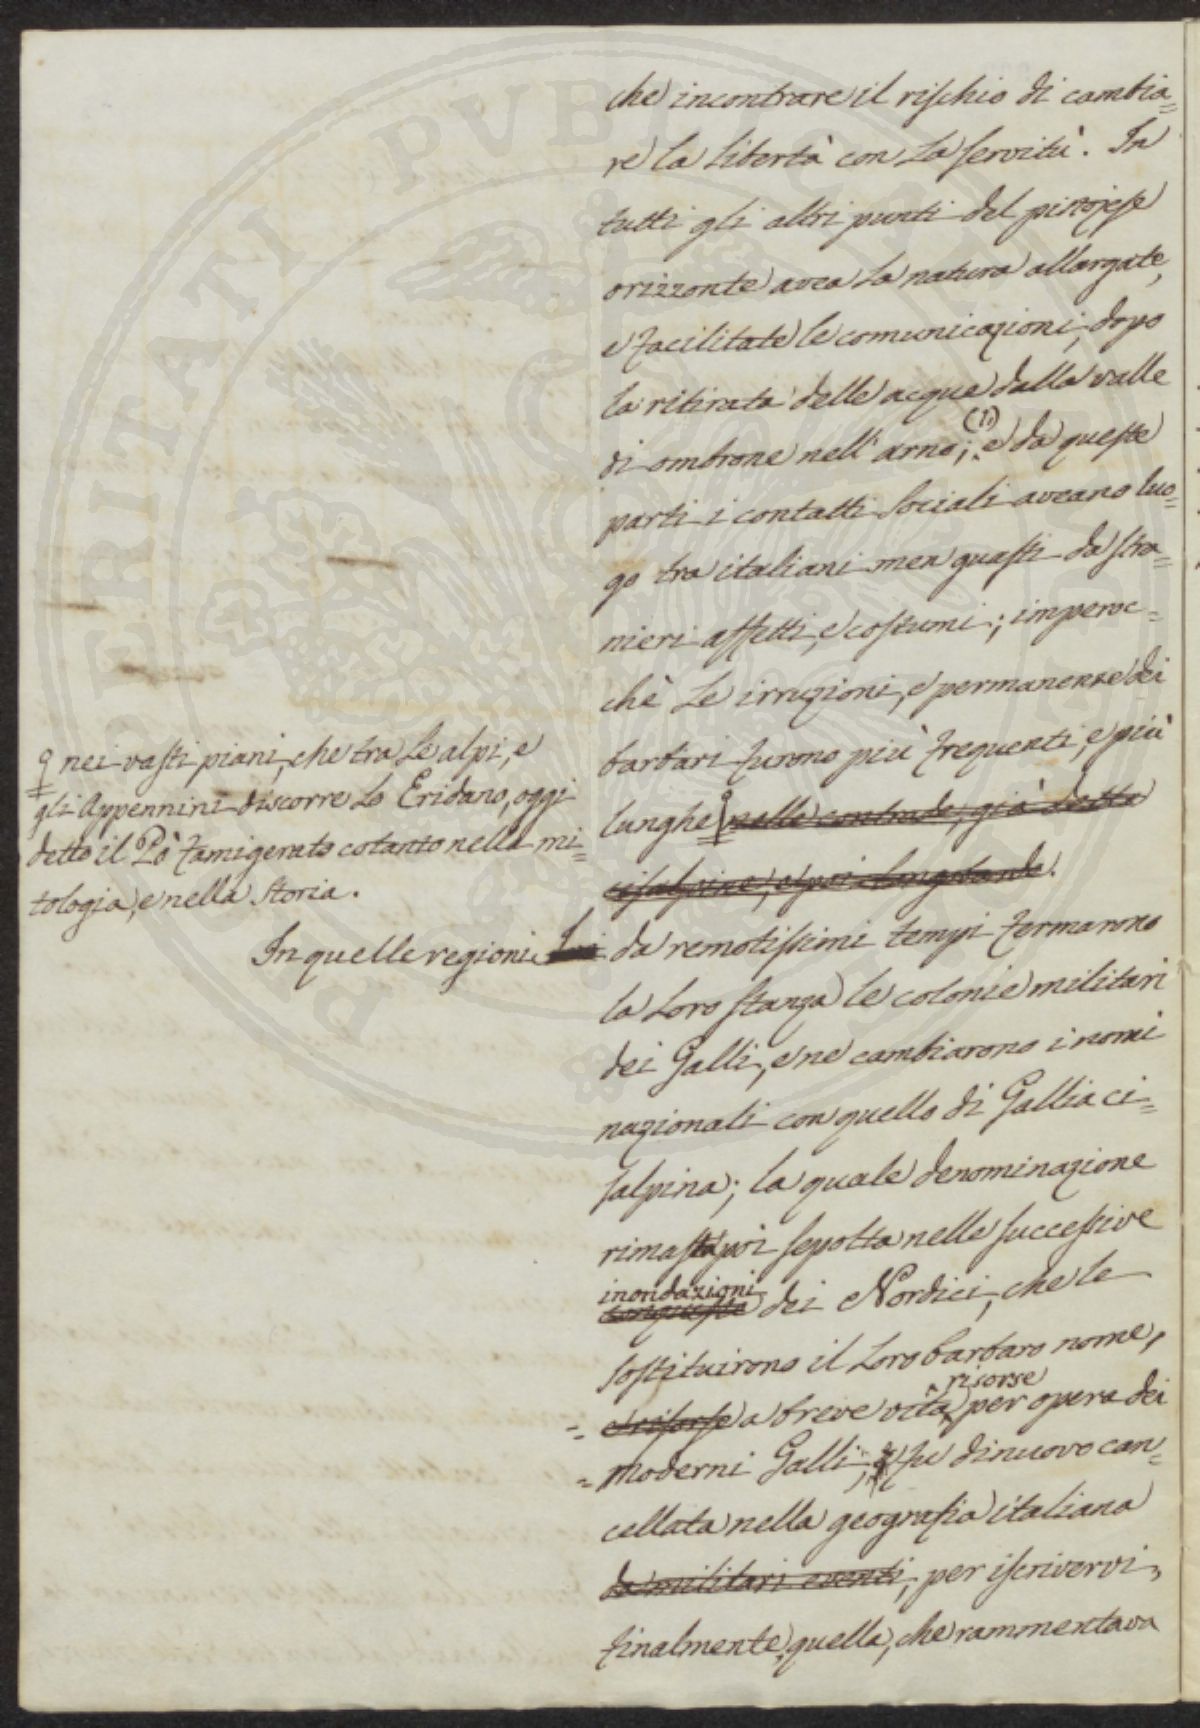 che incontrare il rischio di cambia=
re la libertà con la servitù. In
tutti gli altri punti del pistojese
orizzonte avea la natura allargate,
e facilitate le comunicazioni, dopo
la ritirata delle acque dalla valle
(1)
di ombrone nell' arno; e da queste
parti i contatti sociali aveano luo=
go tra italiani men guasti da stra=
nieri affetti, e costumi; imperoc=
chè le irruzioni, e permanenze dei
barbari furono più frequenti, e più
lunghe nelle contrade, già dette
cisalpine, e poi longobarde.
nei vasti piani, che tra le alpi, e
gli Appennini discorre lo Eridano, oggi
detto il Pò famigerato cotanto nella mi=
tologia, e nella storia.
In quelle regioni da remotissimi tempi fermarono
la loro stanza le colonie militari
dei Galli, e ne cambiarono i nomi
nazionali con quello di Gallia ci=
salpina; la quale denominazione
rimasta poi sepolta nelle successive
inondazioni
conqueste dei Nordici, che le
sostituirono il loro barbaro nome,
risorse
= e risorse a breve vita per opera dei
= moderni Galli, fu di nuovo can=
cellata nella geografia italiana
da militari eventi, per iscrivervi,
finalmente, quella, che rammentava
PERITATI PVBLICAE